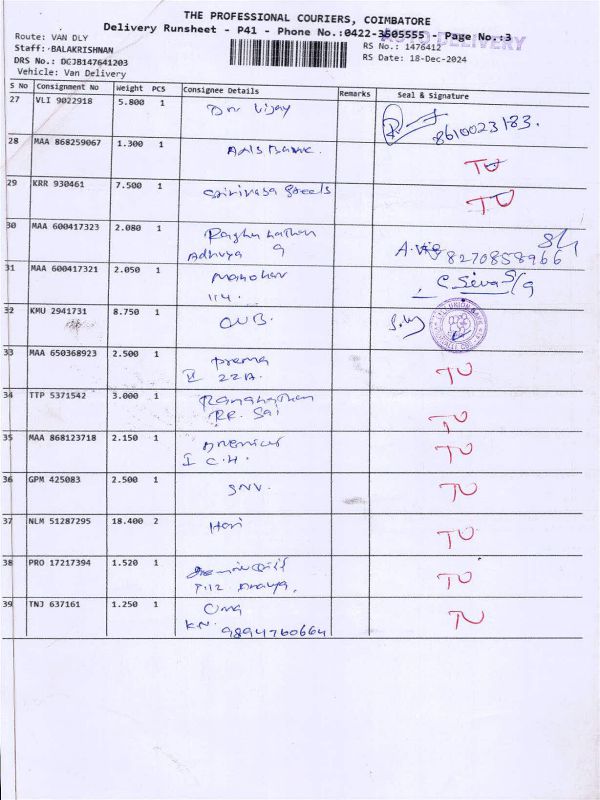 THE PROFESSIONAL COURIERS, COIMBATORE
Delivery Runsheet - P41 - Phone No.:0422-3505555 - Page No.:3
Route: VAN DLY
RS No.: 1476412
Staff: BALAKRISHNAN
RS Date: 18-Dec-2024
DRS No.: DGJB147641203
Vehicle: Van Delivery
S No Consignment No Weight PCS Consignee Details Remarks Seal & Signature
27 VLI 9022918 5.800 1 Dr Vijay 8610023183.
28 MAA 868259067 1.300 1 Axis Bank. TU
29 KRR 930461 7.500 1 Srinivasa Steels TU
30 MAA 600417323 2.080 1 Raghunathan
Adhvya 9 8270858966
31 MAA 600417321 2.050 1 Manohar C. Siva
114.
32 KMU 2941731 8.750 1 CUB.
33 MAA 650368923 2.500 1 Prema TU
II 22A.
34 TTP 5371542 3.000 1 Ranganathan TU
RR. Sai
35 MAA 868123718 2.150 1 TU
I C.H.
36 GPM 425083 2.500 1 SNV. TU
37 NLM 51287295 18.400 2 Hari TU
38 PRO 17217394 1.520 1 TU
39 TNJ 637161 1.250 1 Uma TU
K.N. 9894760664